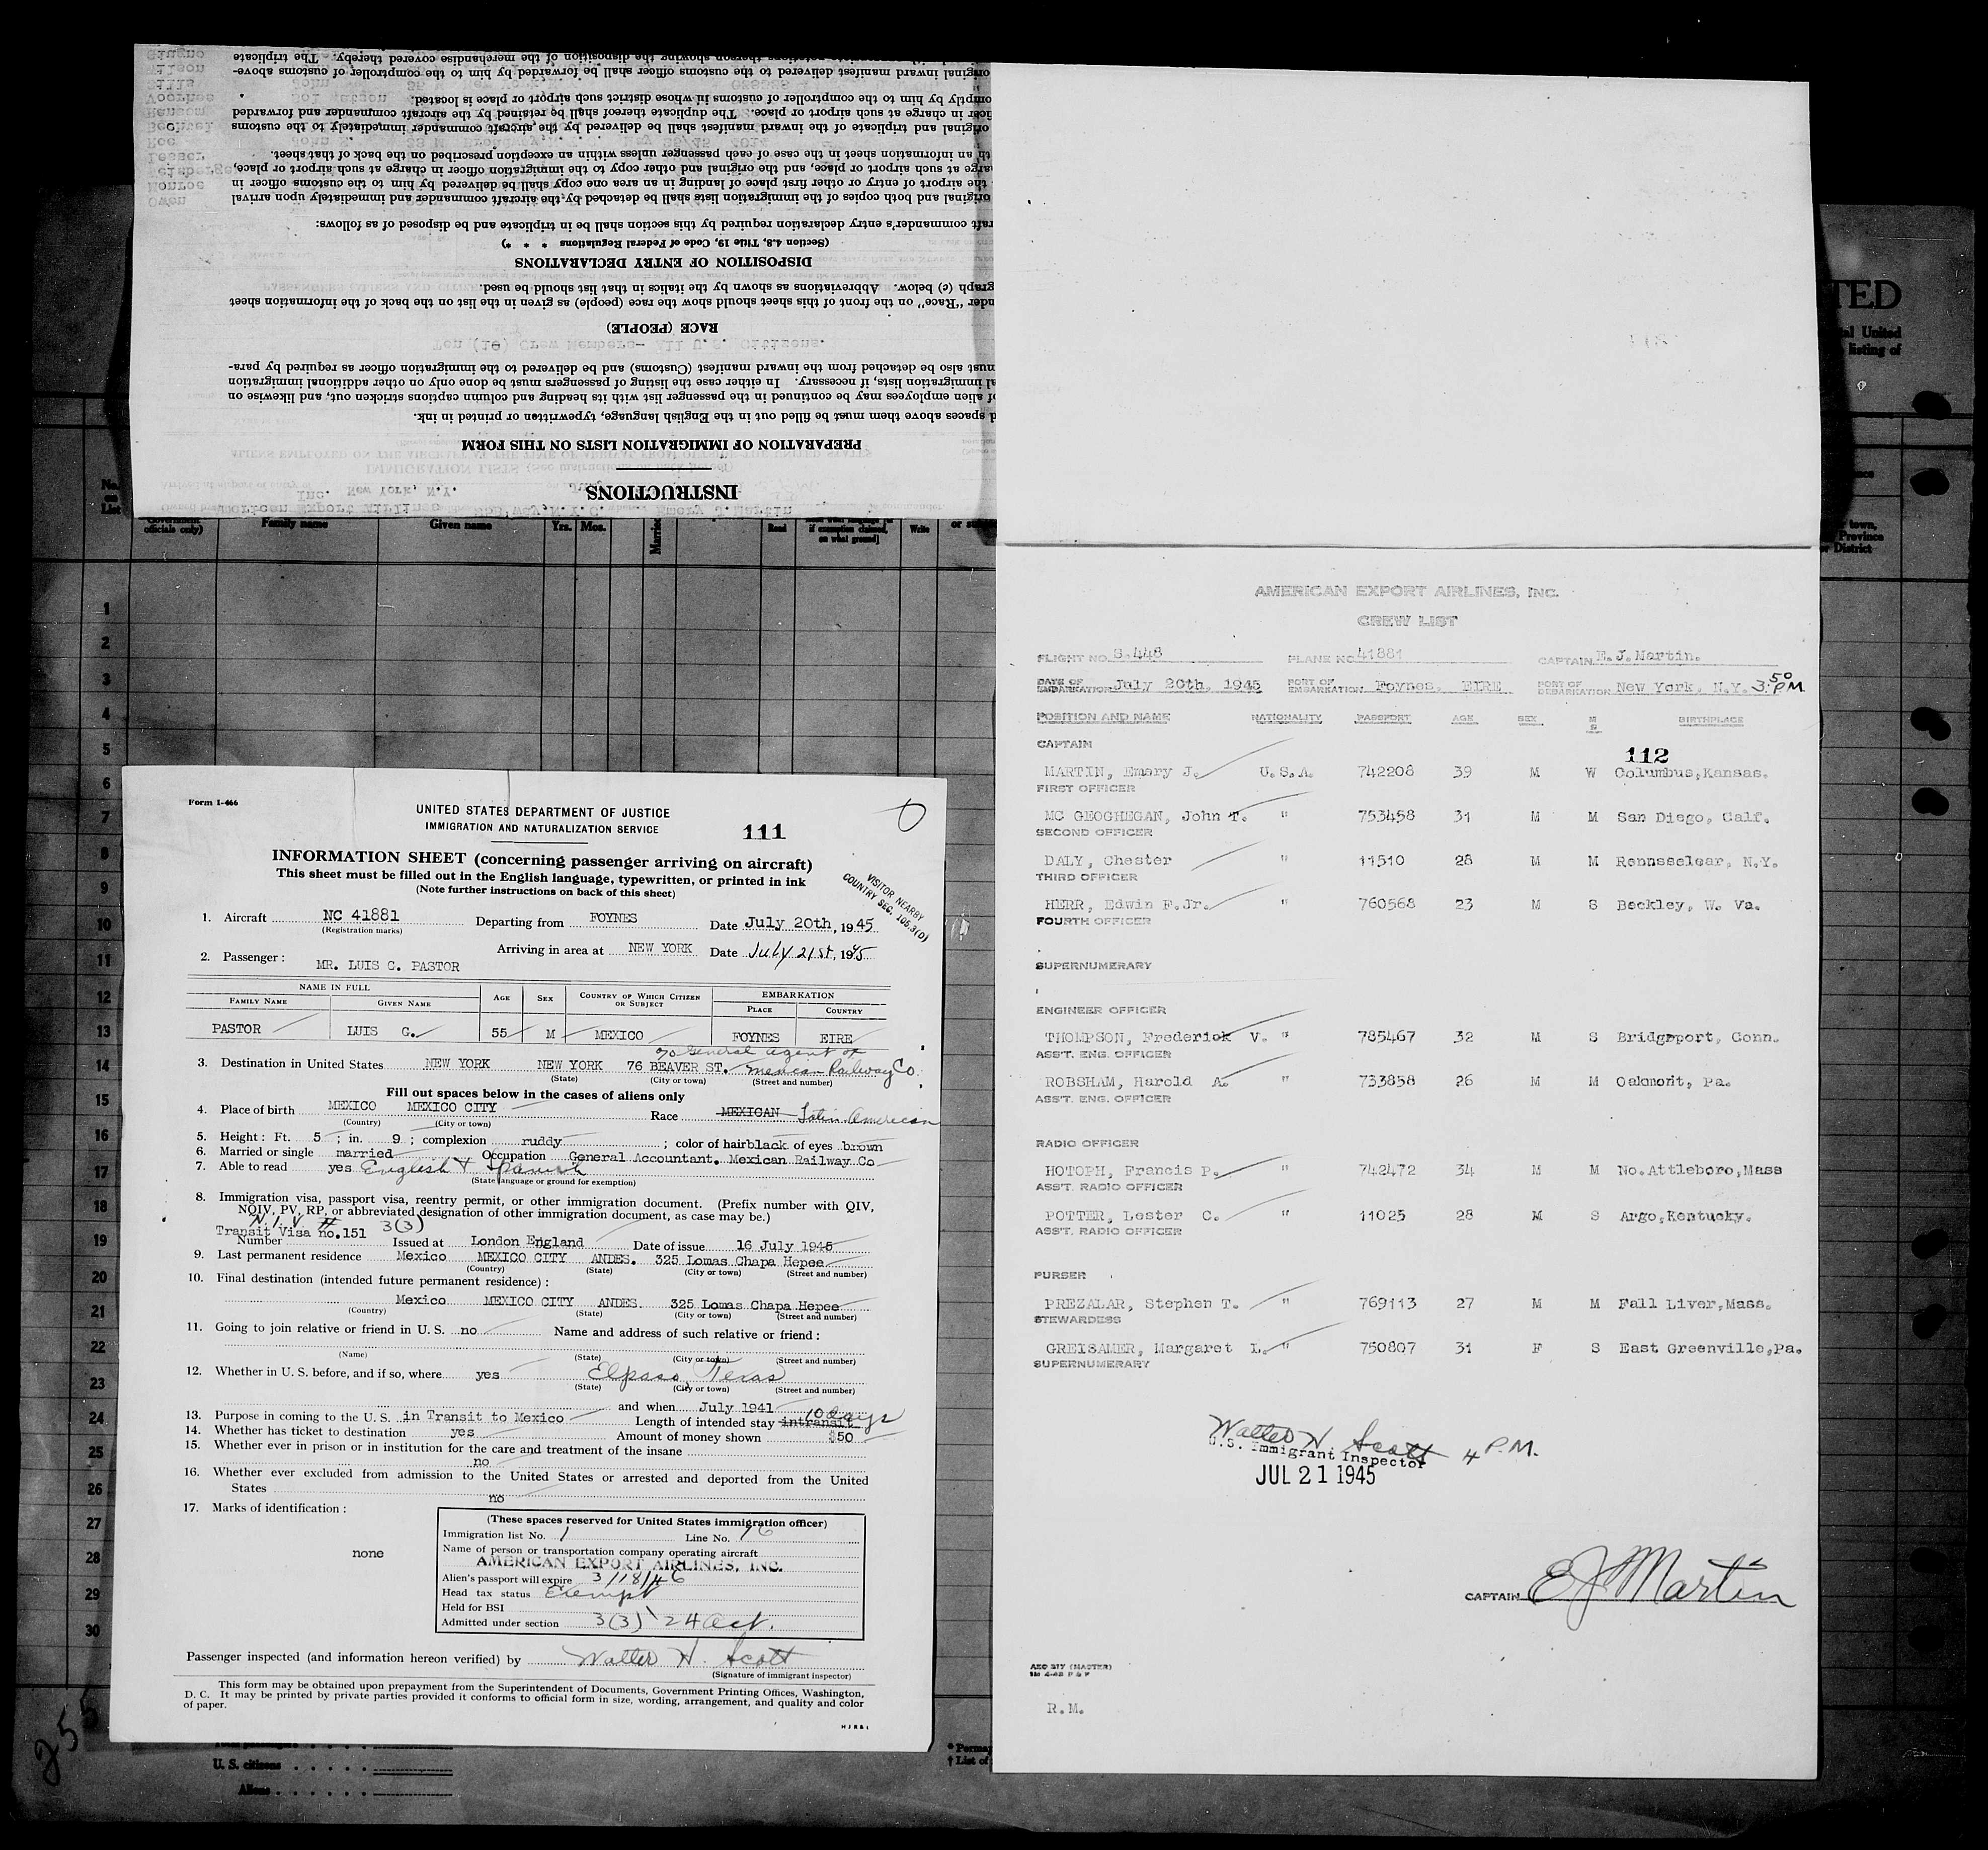 Form I-466
UNITED STATES DEPARTMENT OF JUSTICE
IMMIGRATION AND NATURALIZATION SERVICE
111
INFORMATION SHEET (concerning passenger arriving on aircraft)
This sheet must be filled out in the English language, typewritten, or printed in ink
(Note further instructions on back of this sheet)
VISITOR NEARBY
COUNTRY SEC. 106.3(D)
1. Aircraft NC 41881 Departing from FOYNES Date July 20th, 1945
(Registration marks)
Arriving in area at NEW YORK Date July 21st, 1945
2. Passenger: MR. LUIS C. PASTOR
NAME IN FULL AGE SEX COUNTRY OF WHICH CITIZEN OR SUBJECT EMBARKATION
FAMILY NAME GIVEN NAME PLACE COUNTRY
PASTOR LUIS G. 55 M MEXICO FOYNES EIRE
c/o General agent of
3. Destination in United States NEW YORK NEW YORK 76 BEAVER ST. Mexican Railway Co.
(State) (City or town) (Street and number)
Fill out spaces below in the cases of aliens only
4. Place of birth MEXICO MEXICO CITY Race MEXICAN Latin American
(Country) (City or town)
5. Height: Ft. 5; in. 9; complexion ruddy; color of hair black of eyes brown
6. Married or single married Occupation General Accountant. Mexican Railway Co
7. Able to read yes English & Spanish
(State language or ground for exemption)
8. Immigration visa, passport visa, reentry permit, or other immigration document. (Prefix number with QIV,
NQIV, PV, RP, or abbreviated designation of other immigration document, as case may be.)
N.I.V # 3(3)
Transit Visa no.151
Number Issued at London England Date of issue 16 July 1945
9. Last permanent residence Mexico MEXICO CITY ANDES. 325 Lomas Chapa Hepee
(Country) (State) (City or town) (Street and number)
10. Final destination (intended future permanent residence):
Mexico MEXICO CITY ANDES. 325 Lomas Chapa Hepee
(Country) (State) (City or town) (Street and number)
11. Going to join relative or friend in U. S. no Name and address of such relative or friend:
(Name) (State) (City or town) (Street and number)
12. Whether in U. S. before, and if so, where yes Elpaso, Texas
(State) (City or town) (Street and number)
and when July 1941
13. Purpose in coming to the U. S. in Transit to Mexico Length of intended stay intransit 10 days
14. Whether has ticket to destination yes Amount of money shown $50
15. Whether ever in prison or in institution for the care and treatment of the insane
no
16. Whether ever excluded from admission to the United States or arrested and deported from the United
States no
17. Marks of identification:
none
(These spaces reserved for United States immigration officer)
Immigration list No. 1 Line No. 16
Name of person or transportation company operating aircraft
AMERICAN EXPORT AIRLINES, INC.
Alien's passport will expire 3/18/46
Head tax status Exempt
Held for BSI
Admitted under section 3(3) '24 Act.
Passenger inspected (and information hereon verified) by Walter H. Scott
(Signature of immigrant inspector)
This form may be obtained upon prepayment from the Superintendent of Documents, Government Printing Offices, Washington,
D. C. It may be printed by private parties provided it conforms to official form in size, wording, arrangement, and quality and color
of paper.
AMERICAN EXPORT AIRLINES, INC.
CREW LIST
FLIGHT NO. S.448 PLANE NO. 41881 CAPTAIN E. J. Martin.
DATE OF EMBARKATION July 20th, 1945 PORT OF EMBARKATION Foynes, EIRE PORT OF DEBARKATION New York, N.Y. 3:50 PM
POSITION AND NAME NATIONALITY PASSPORT AGE SEX M S BIRTHPLACE
CAPTAIN
112
MARTIN, Emary J. U.S.A. 742208 39 M W Columbus,Kansas.
FIRST OFFICER
MC GEOGHEGAN, John T. " 753458 31 M M San Diego, Calf.
SECOND OFFICER
DALY, Chester " 11510 28 M M Rennsselear, N.Y.
THIRD OFFICER
HERR, Edwin F.Jr. " 760568 23 M S Beckley, W. Va.
FOURTH OFFICER
SUPERNUMERARY
ENGINEER OFFICER
THOMPSON, Frederick V. " 785467 32 M S Bridgeport, Conn.
ASS'T. ENG. OFFICER
ROBSHAM, Harold A. " 733858 26 M M Oakmont, Pa.
ASS'T. ENG. OFFICER
RADIO OFFICER
HOTOPH, Francis P. " 742472 34 M M No.Attleboro,Mass
ASS'T. RADIO OFFICER
POTTER, Lester C. " 11025 28 M S Argo,Kentucky.
ASS'T. RADIO OFFICER
PURSER
PREZALAR, Stephen T. " 769113 27 M M Fall Liver,Mass.
STEWARDESS
GREISAMER, Margaret L. " 750807 31 F S East Greenville,Pa.
SUPERNUMERARY
Walter H. Scott 4 P.M.
U.S. Immigrant Inspector
JUL 21 1945
CAPTAIN E J Martin
R.M.
INSTRUCTIONS
PREPARATION OF IMMIGRATION LISTS ON THIS FORM
spaces above them must be filled out in the English language, typewritten or printed in ink.
of alien employees may be continued in the passenger list with its heading and column captions stricken out, and likewise on
immigration lists, if necessary. In either case the listing of passengers must be done only on other additional immigration
must also be detached from the inward manifest (Customs) and be delivered to the immigration officer as required by para-
RACE (PEOPLE)
"Race" on the front of this sheet should show the race (people) as given in the list on the back of the information sheet
(c) below. Abbreviations as shown by the italics in that list should be used.
DISPOSITION OF ENTRY DECLARATIONS
(Section 4.8, Title 19, Code of Federal Regulations * * *)
commander's entry declaration required by this section shall be in triplicate and be disposed of as follows:
original and both copies of the immigration lists shall be detached by the aircraft commander and immediately upon arrival
the airport of entry or other first place of landing in an area one copy shall be delivered by him to the customs officer in
at such airport or place, and the original and other copy to the immigration officer in charge at such airport or place,
an information sheet in the case of each passenger unless within an exception prescribed on the back of that sheet.
original and triplicate of the inward manifest shall be delivered by the aircraft commander immediately to the customs
in charge at such airport or place. The duplicate thereof shall be retained by the aircraft commander and forwarded
by him to the comptroller of customs in whose district such airport or place is located.
original inward manifest delivered to the customs officer shall be forwarded by him to the comptroller of customs above-
notations thereon showing the disposition of the merchandise covered thereby. The triplicate
No. on List
Family name Given name Yrs. Mos. Married Read Write
1
2
3
4
5
6
7
8
9
10
11
12
13
14
15
16
17
18
19
20
21
22
23
24
25
26
27
28
29
30
U. S. citizens
Aliens
255
TED
United
listing of
town,
Province
or District